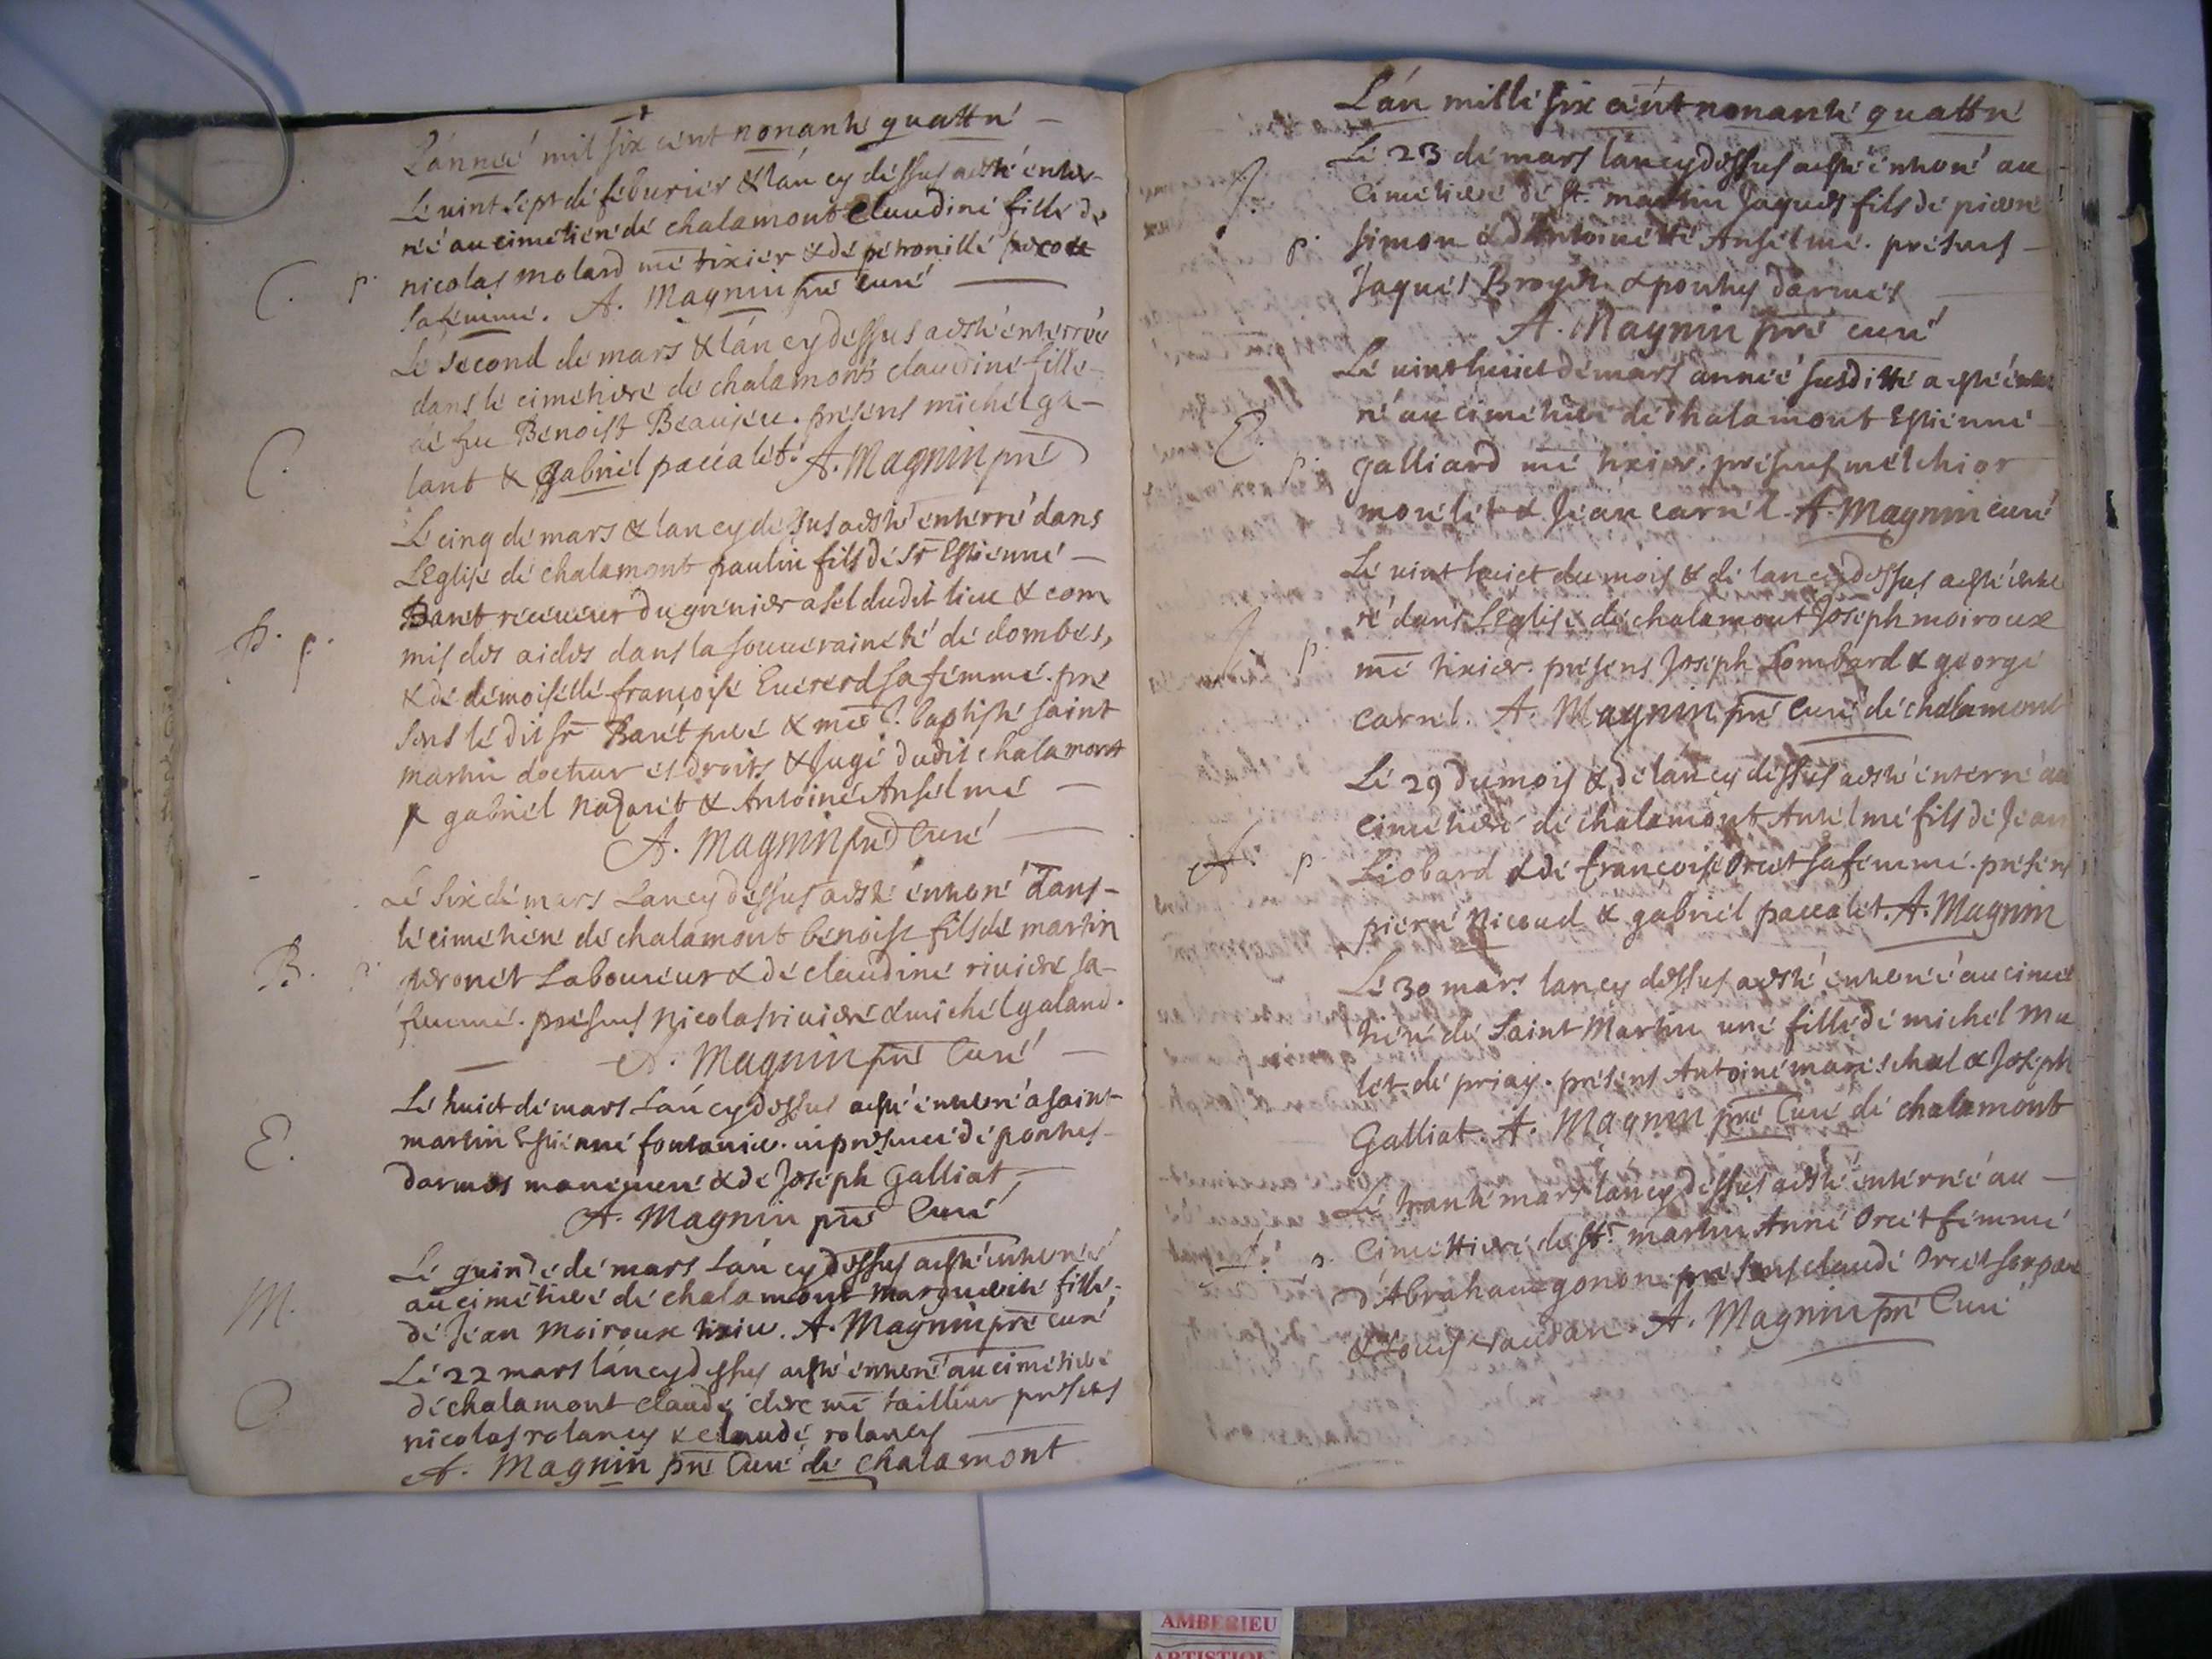 L'année mil six cent nonante quattre
Le vint sept de feburier & l'an cy dessus a esté enter-
ré au cimetiere de chalamont Claudine fille de
C. p. nicolas molard me tixier & de petronille
sa femme. A. Magnin pre Curé
Le second de mars & l'an cy dessus a esté enterrée
dans le cimetiere de chalamont claudine fille
de feu Benoist Beaujeu. presens michel ga-
C. lant & Gabriel paccalet. A. Magnin pre
Le cinq de mars & l'an cy dessus a esté enterré dans
L'Eglise de chalamont paulin fils de Sr Estienne
Baret receveur du grenier a sel dudit lieu & com
P. p. mis des aides dans la souveraineté de dombes,
& de demoiselle françoise Evererd sa femme. pre
sens le dit Sr Baret pere & me J. baptiste saint
martin docteur es droits & Juge dudit chalamont
& gabriel Nazaret & Antoine Anselme
A. Magnin pre Curé
Le six de mars L'an cy dessus a esté enterré dans
le cimetiere de chalamont benoist fils de martin
B. p. peronet Laboureur & de claudine riviere sa
femme. presens Nicolas riviere & michel galand.
A. Magnin pre Curé
Le huict de mars L'an cy dessus a esté enterré a saint
E. martin Estienne fontanier. in presence de ponthus
darmes & de Joseph Galliat
A. Magnin pre Curé
Le quinze de mars L'an cy dessus a esté enterrée
au cimetiere de chalamont marguerite fille
M. de Jean Moiroux tixier. A. Magnin pre curé
Le 22 mars l'an cy dessus a esté enterré au cimetiere
C. de chalamont claude clerc me tailleur presens
nicolas rolancy & claude rolancy
A. Magnin pre Curé de chalamont
L'an mille six cent nonante quattre
Le 23 de mars l'an cy dessus a esté enterré au
J. cimetiere de St. martin Jaques fils de pierre
p. simon & d'Antoinette Anselme. presens
Jaques Broyer & ponthus darmes
A. Magnin pre curé
Le vint huict de mars année susditte a esté enter
E. ré au cimetiere de Chalamont Estienne
p. galliard me tixier. presens melchior
moulet & Jean carrel. A. Magnin curé
Le vint huict du mois & de l'an cy dessus a esté enter
ré dans L'Eglise de chalamont Joseph moiroux
J. p. me tixier. presens Joseph Lombard & george
carrel. A. Magnin pre Curé de chalamont
Le 29 du mois & de l'an cy dessus a esté enterré au
cimetiere de chalamont Antelme fils de Jean
A. p. Liobard & de françoise Orcet sa femme. presens
pierre Nicoud & gabriel paccalet. A. Magnin
Le 30 mars l'an cy dessus a esté enterrée au cime
tiere de Saint Martin une fille de michel Mu
let de priay. presens Antoine mareschal & Joseph
Galliat. A. Magnin pre Curé de chalamont
Le trante mars l'an cy dessus a esté enterrée au
cimettiere de St. martin Anne Orcet femme
A. p. d'Abraham gonon. presens claude Orcet son pere
A. Magnin pre Curé
AMBERIEU